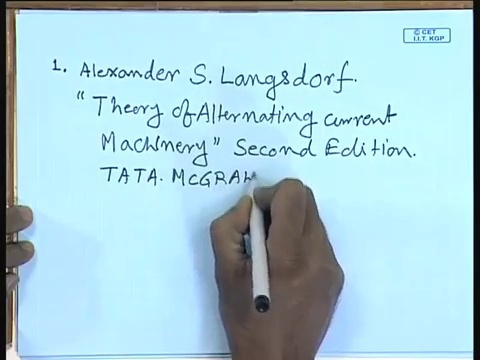 © CET
I.I.T. KGP
1. Alexander S. Langsdorf.
"Theory of Alternating current
Machinery" Second Edition.
TATA. McGRAW